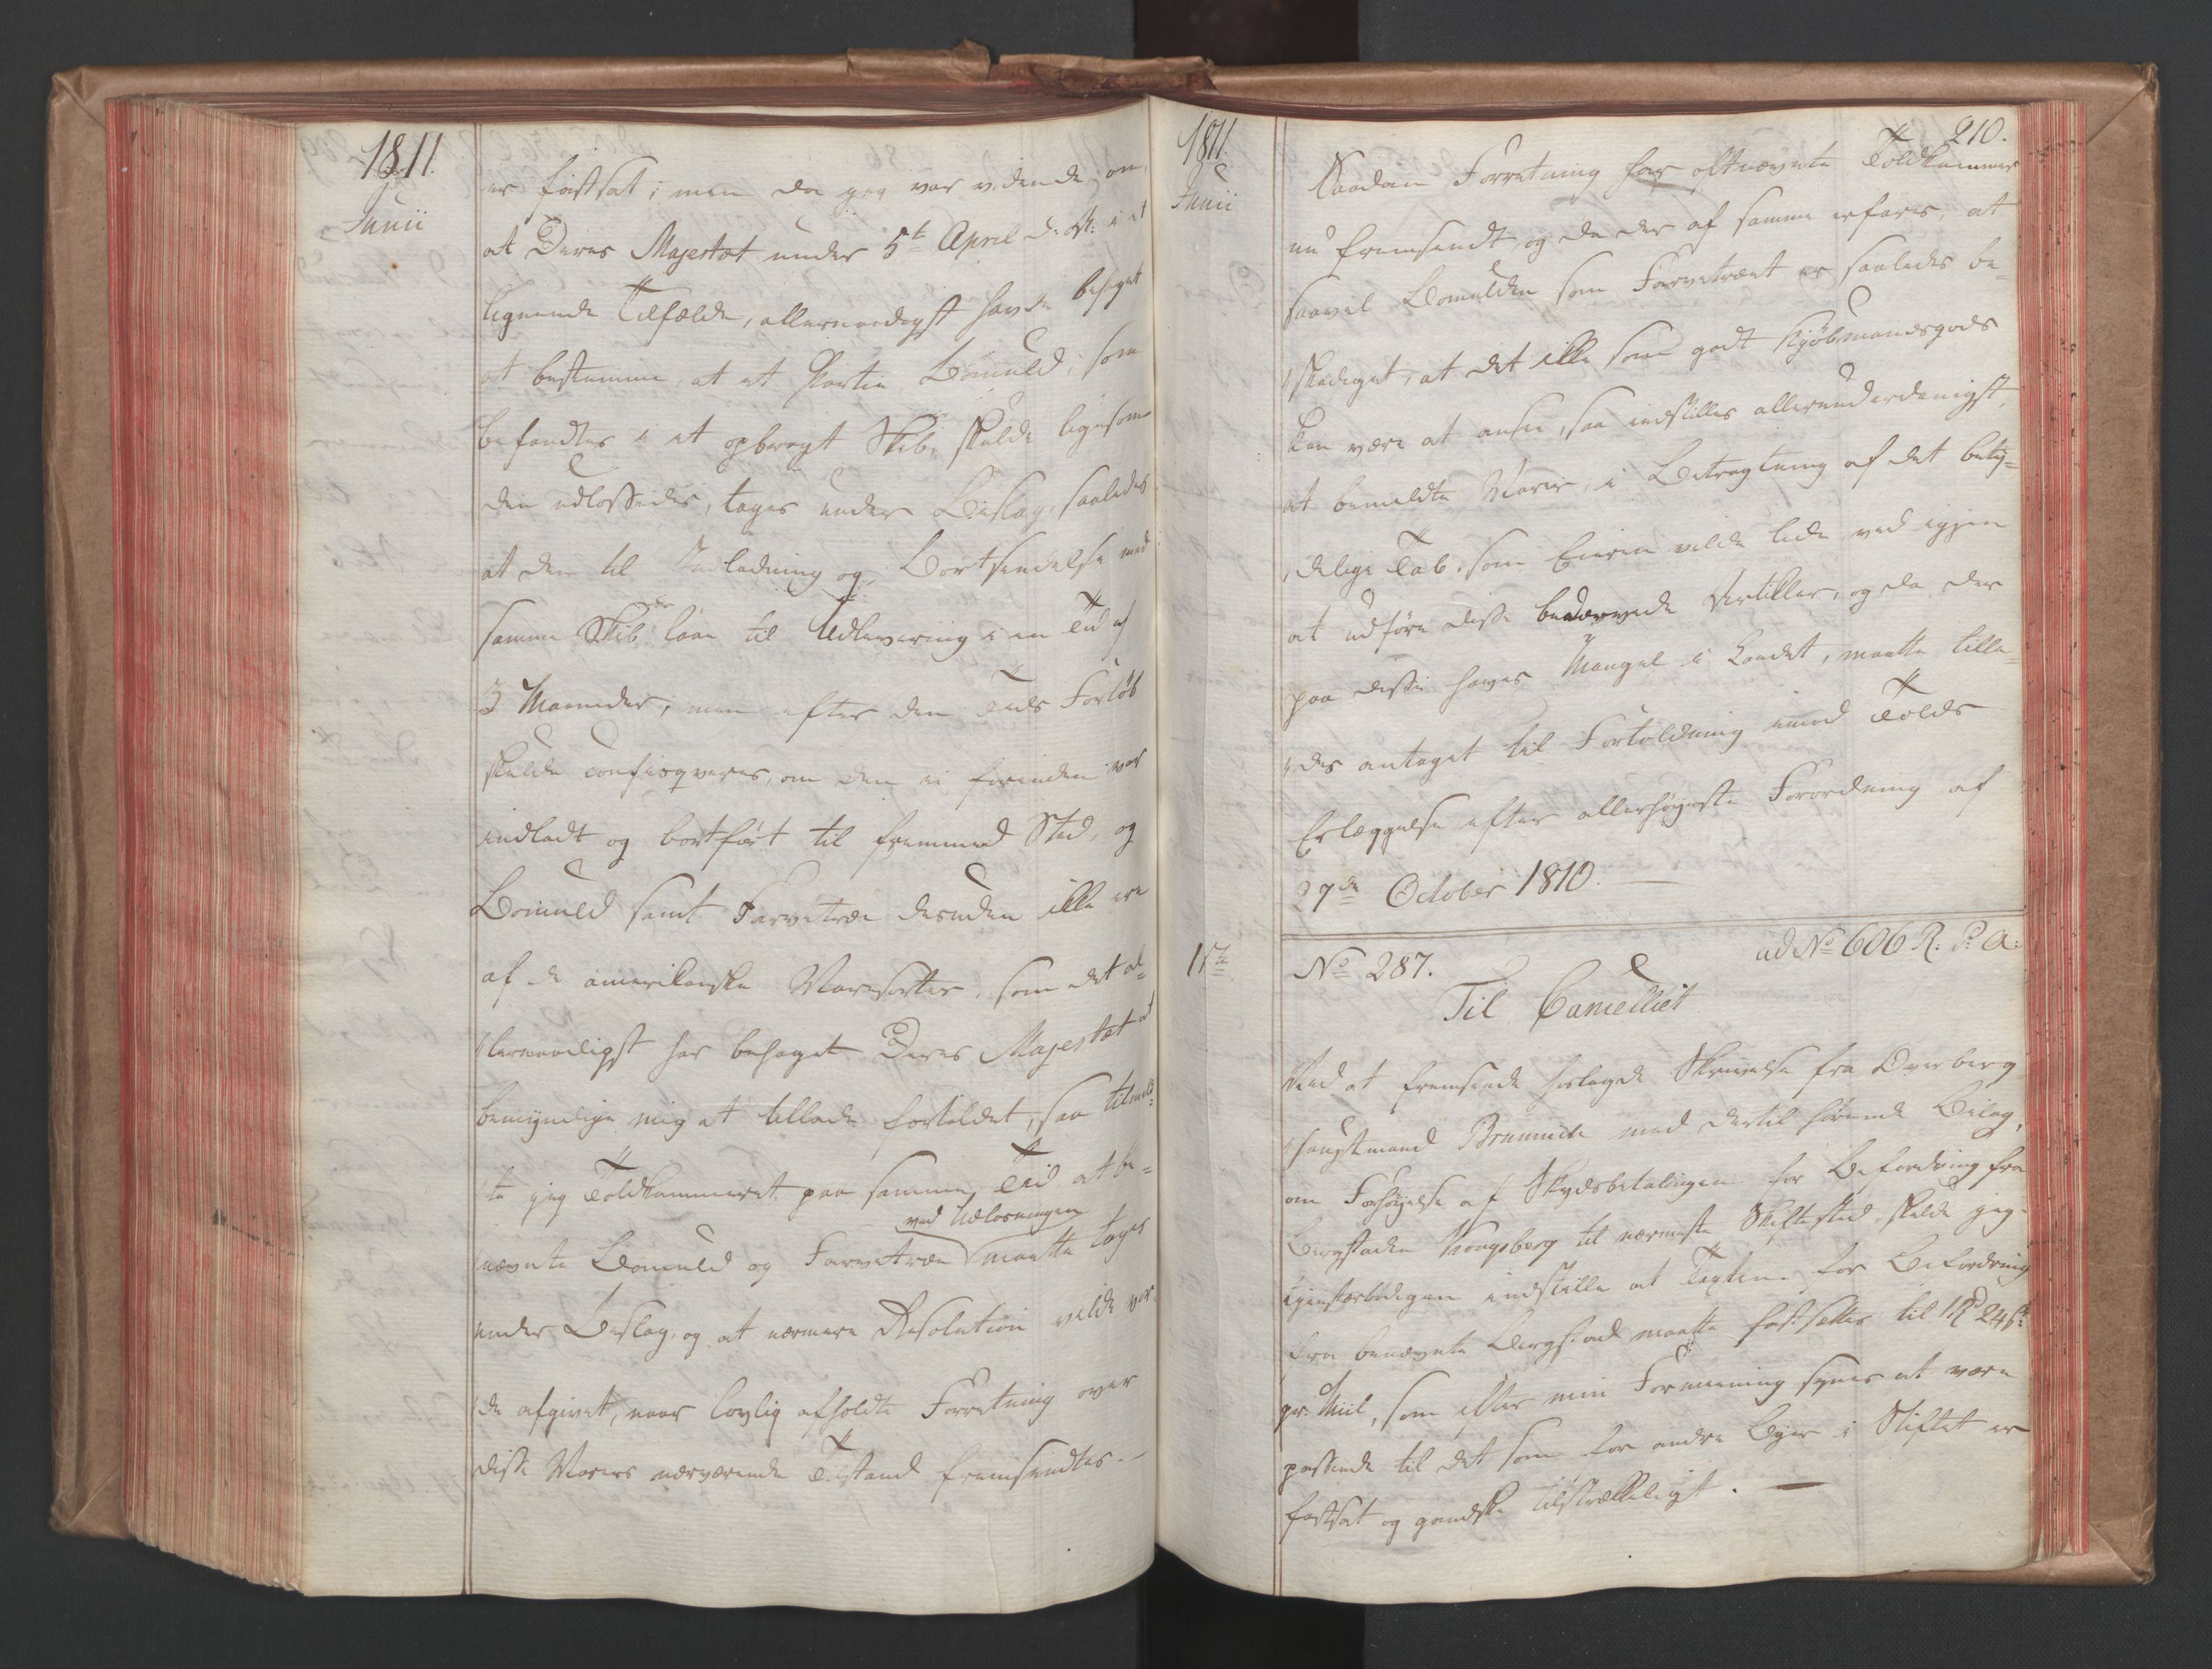 1811.
Junii
er fastsat; men da jeg var vidende om,
at Deres Majestæt under 5te April d: A: i et
lignende Tilfælde, allernaadigst havde behaget
at bestemme, at et Partie Bomuld, som
befandtes i et opbragt Skib, skulde ligesom
den udlossedes, tages under Beslag, saaledes
at den til Indladning og Bortsendelse med
samme Skib laae til Udlevering i en Tid af
3 Maaneder, men efter den Tids Forløb
skulde confisqveres, om den ei forinden var
indladt og bortført til fremmed Sted, og
Bomuld samt Farvetræe desuden ikke ere
af de amerikanske Varesorter, som det al=
lernaadigst har behaget Deres Majestæt at
bemyndige mig at tillade fortoldet, saa tilmeld=
te jeg Toldkammeret paa samme Tid at be=
nævnte Bomuld og Farvetræe ved Udlosningen maatte tages
under Beslag, og at nærmere Resolution vilde vor=
de afgivet, naar lovlig afholdt Forretning over
disse Varers nærværende Tilstand fremsendtes. –
1811.
Junii
210.
Saadan Forretning har oftnævnte Toldkammer
nu fremsendt, og da der af samme erfares, at
saavel Bomulden som Farvetræet er saaledes be=
skadiget, at det ikke som godt Kjøbmandsgods
kan være at ansee, saa indstilles allerunderdanigst,
at bemeldte Varer, i Betragtning af det bety=
delige Tab, som Eieren vilde lide ved igjen
at udføre disse bedærvede Artikler, og da der
paa disse haves Mangel i Landet, maatte tilla=
des antaget til Fortoldning imod Tolds
Erlæggelse efter allerhøyeste Forordning af
27de October 1810. —
15de
No 287.
ad No 606 R: P: A:
Til Cancelliet
Ved at fremsende hoslagde Skrivelse fra Overberg
hauptmand Brünnich med dertil hørende Bilag,
om Forhøyelse af Skydsbetalingen for Befordring fra
Bergstaden Kongsberg til nærmeste Skiftested, skulde jeg
tjenstærbødigen indstille at Taxten for Befordring
fra benævnte Bergstad maatte fastsættes til 1 Rd 24 s:
pr. Miil, som efter min Formeening synes at være
passende til det som for andre Byer i Stiftet er
fastsat og gandske tilstrækkeligt. —